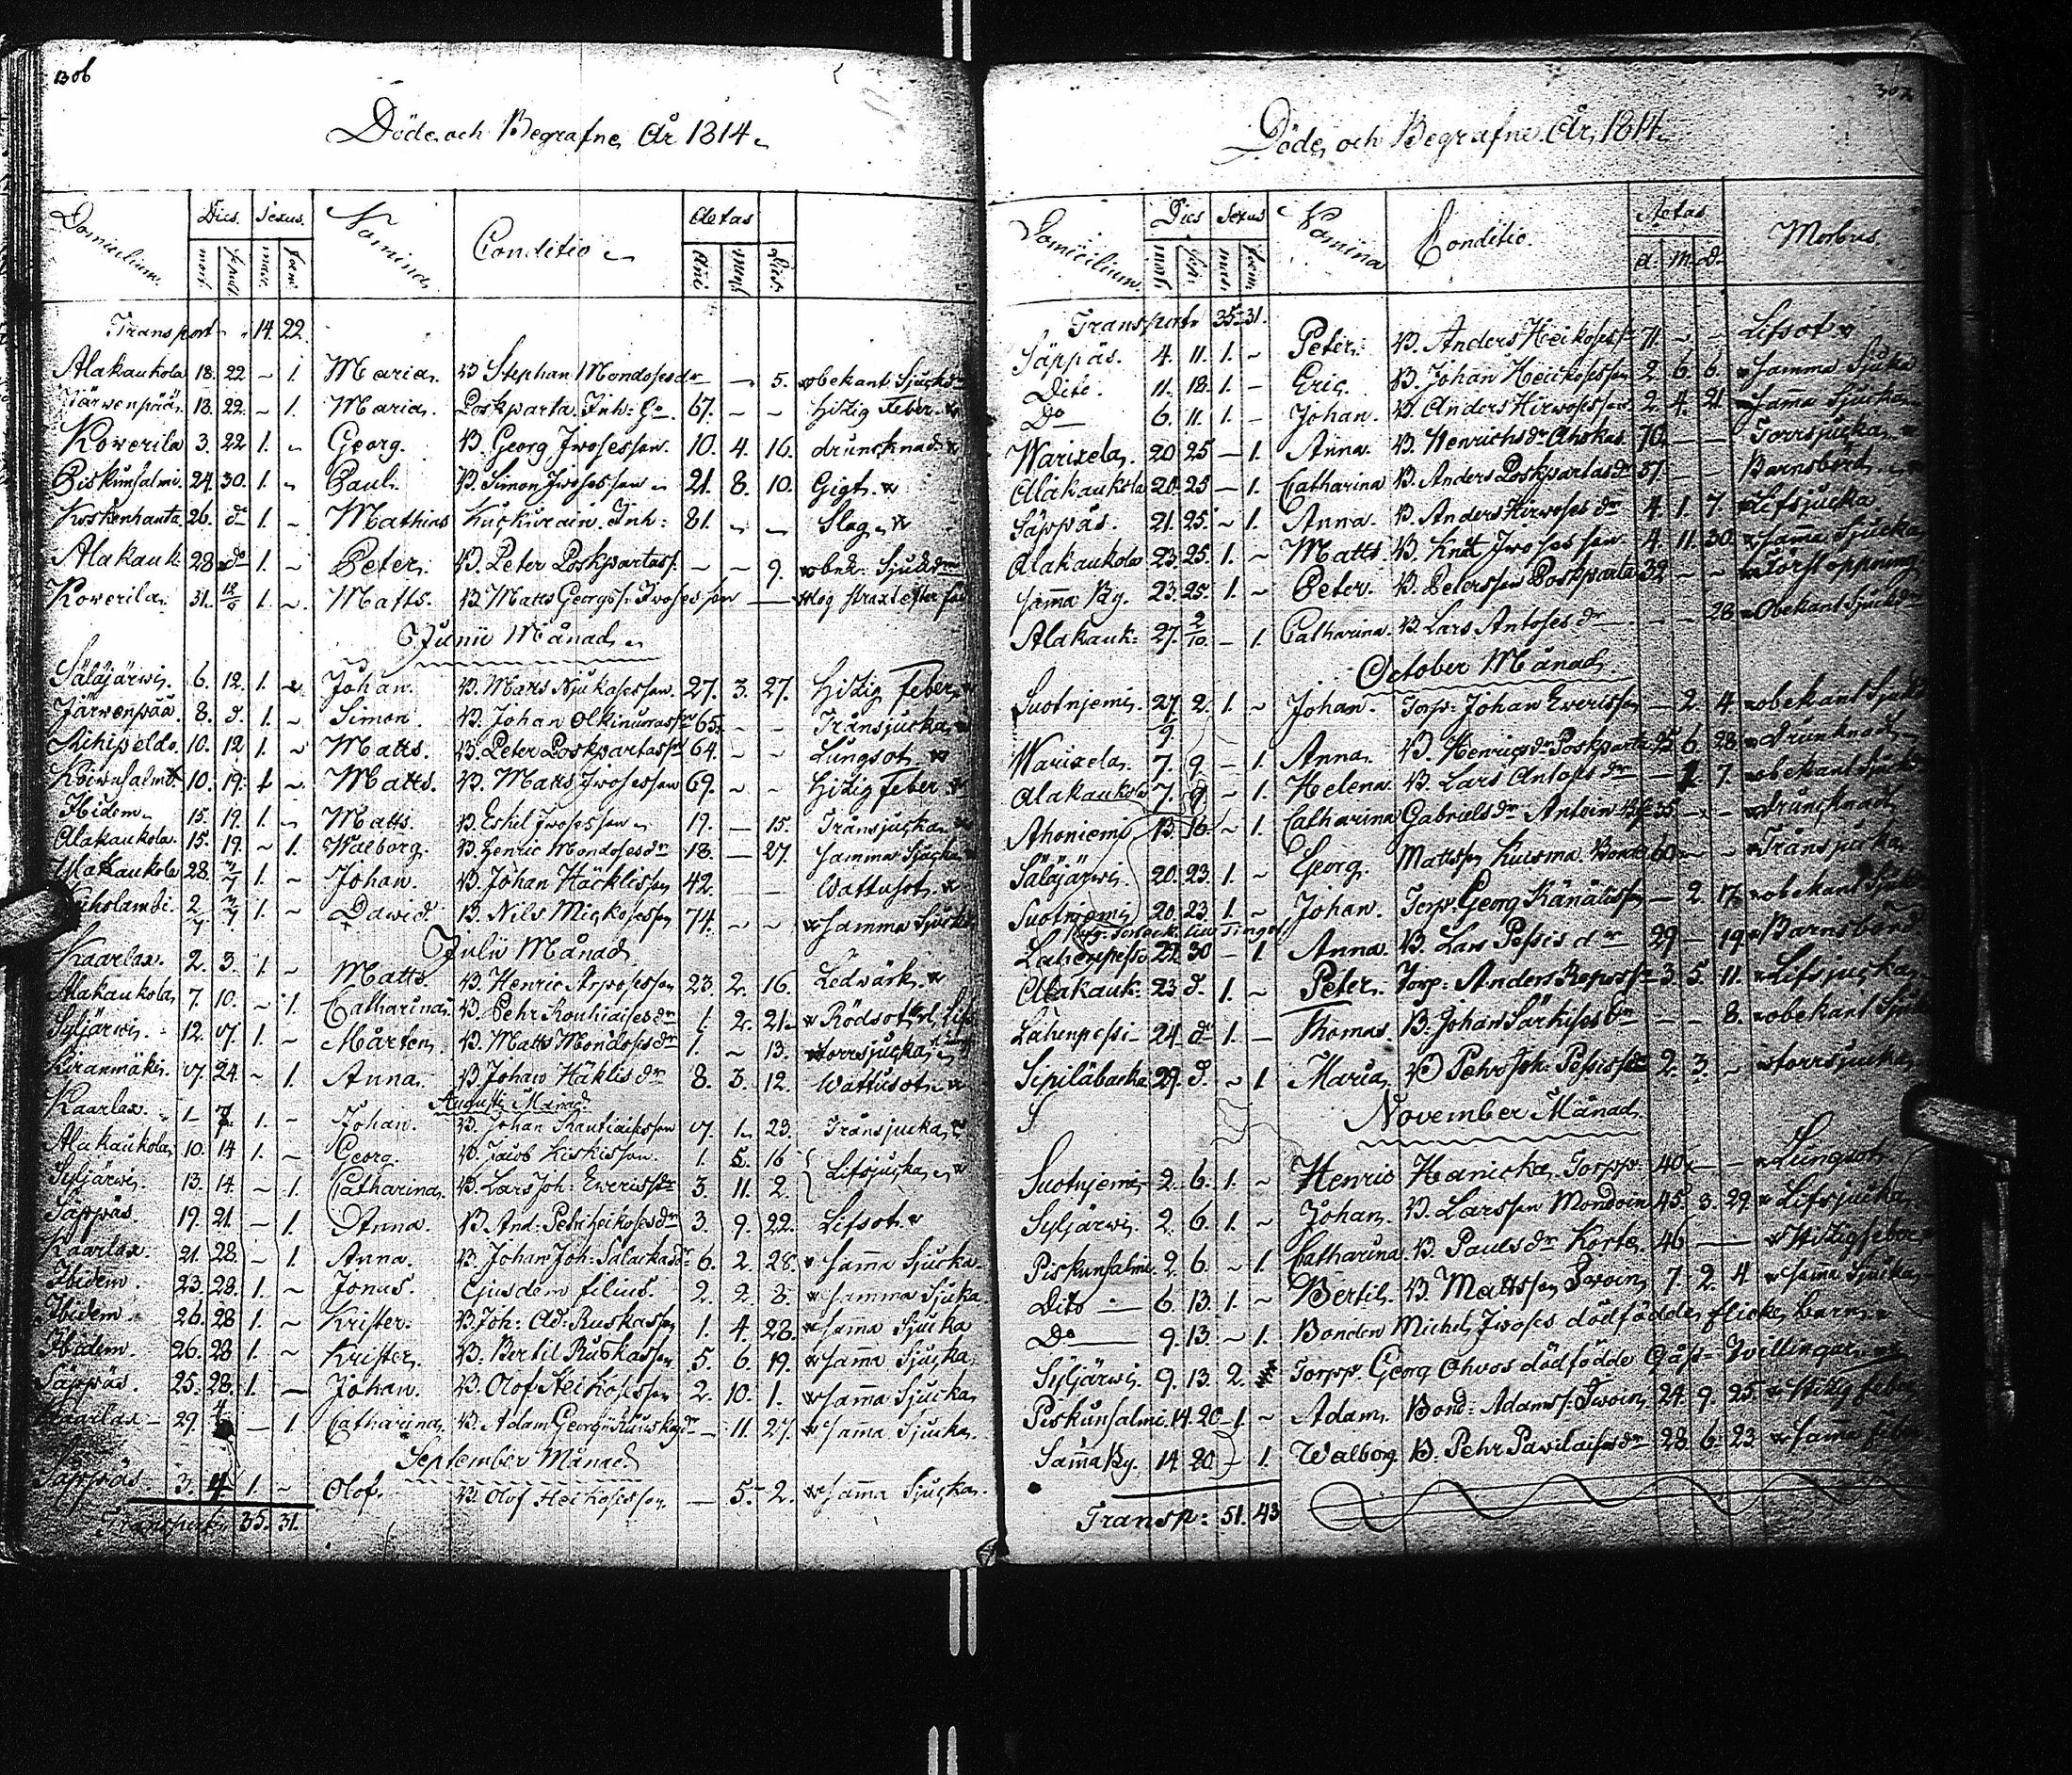 306
Döde och Begrafne År 1814
Domicilium. Dies. Sexus. Nomina Conditio Aetas
mort. sepult. masc. foem. Ani Mens Dies
Transport 14 22
Alakaukola 18. 22 ~ 1. Maria. B. Stephan Mondoses dr — — 5. obekant Sjuckd
Järwenpää 18. 22. ~ 1. Maria. Poskparta Inh: 67. ~ ~ Hitzig Feber
Kowerila 3. 22 1. ~ Georg. B. Georg Iwosessen. 10. 4. 16. druncknad
Piskunsalmi 24. 30. 1. ~ Paul. B. Simon Iwosessen 21. 8. 10. Gigt.
Koskenhauta 26. do 1. ~ Mathias Kuckurain Inh: 81. ~ ~ Slag
Alakauk: 28 do 1. ~ Peter. B. Peter Poskpartas s. ~ ~ 9. obek: Sjukdm
Kowerila. 31. 12/6 1. ~ Matts. B. Matts Georgss. Iwosessen — dog straxt efter
Junii Månad
Säläjärwi. 6. 12. 1. ~ Johan. B. Matts Njukosessen. 27. 3. 27. Hitzig Feber
Järwenpää. 8. d. 1. ~ Simon. B. Johan Olkinuorassn 65. ~ ~ Trånsjucka
10. 12 1. ~ Matts. B. Peter Poskpartassn 64. ~ ~ Lungsot.
10. 19. 1 ~ Matts. B. Matts Iwosessen 69. ~ ~ Hitzig Feber
Ibidem 15. 19. 1. ~ Matts. B. Eskel Iwosessen 19. — 15. Trånsjucka
Alakaukola. 15. 19. ~ 1. Walborg. B. Henric Mondoses dr 18. — 27. samma Sjucka
Alakaukola 28. 3/7 1. ~ Johan. B. Johan Häcklissen 42. — — Wattusot.
2/7 3/7 1. ~ David. B. Nils Mickosessen 74. ~ ~ samma Sjucka
Julii Månad
Kaarlax. 2. 3. 1. ~ Matts. B. Henric Arwosessen 23. 2. 16. Ledwärk.
Alakaukola 7. 10. ~ 1. Catharina. B. Pehr Rouhiaises dr 1. 2. 21. Rödsot
Syljärwi. 12. 17. 1. ~ Mårten. B. Matts Mondoses 1. ~ 13. torrsjucka
Kiranmäki. 17. 24. ~ 1. Anna. B. Johan Häklis dr 8. 3. 12. Wattusot
Augusti Månad
Kaarlax. 1. 7. 1. ~ Johan. B. Johan Rautiaissen 17. 1. 23. Trånsjucka
Alakaukola 10. 14 1. ~ Georg. B. Jacob Kiskissen. 1. 5. 16 Lifsjucka
Syljärwi. 13. 14. ~ 1. Catharina. B. Lars Joh: Ewerissdr 3. 11. 2.
Säppäs. 19. 21. — 1. Anna. B. And: Petri Heikoses dr 3. 9. 22. Lifsot
Kaarlax. 21. 28. ~ 1. Anna. B. Johan Joh: Salackas dr 6. 2. 28. samma Sjucka.
Ibidem. 23. 28. 1. ~ Jonas. Ejusdem filius. 2. 2. 3. samma Sjuka.
Ibidem. 26. 28 1. ~ Krister. B. Joh: Ad: Ruskassen 1. 4. 28. samma Sjucka
Ibidem. 26. 28 1. ~ Krister. B. Bertil Ruskassen 5. 6. 19. samma Sjucka
Säppäs. 25. 28. 1. — Johan. B. Olof Heikosessen 2. 10. 1. samma Sjucka
Kaarlax — 29. 4 — 1. Catharina. B. Adam Georg: Ruuskas dr — 11. 27. samma Sjucka.
September Månad
Säppäs. 3. 4. 1. ~ Olof. B. Olof Heikosessen — 5. 2. samma Sjucka.
Transport 35. 31.
307
Döde och Begrafne År 1814
Domicilium. Dies Sexus Nomina Conditio. Aetas Morbus
mort. sep. mas. foem. A. M. D.
Transport 35. 31.
Säppäs. 4. 11. 1. ~ Peter. B. Anders Heikosess. 71. ~ ~ Lifsot
Dito. 11. 18. 1. — Eric. B. Johan Heikosessen 2. 6. 6. samma Sjuka
Do 6. 11. 1. — Johan. B. Anders Hirwosessen 2. 4. 21. samma Sjucka
Warixela. 20 25 — 1. Anna. B. Henrichs dr Ahokas 70. — — Torrsjucka
Alakaukola 20. 25 — 1. Catharina B. Anders Poskpartas dr 37. — — Barnsbörd
Säppäs. 21. 25. ~ 1. Anna. B. Anders Hirwoses dr 4. 1. 7. Lifsjucka
Alakaukola 23. 25. 1. ~ Matts. B. Knut Iwosessen 4. 11. 30. samma Sjucka
samma By. 23. 25. 1. ~ Peter. B. Peterssen Poskparta 32. ~ ~ Förstoppning
Alakauk: 27. 2/10 — 1. Catharina. B. Lars Antoses dr — — 28. Obekant Sjuckdm
October Månad
Suotnjemi. 27/9 2. 1. ~ Johan. Torp: Johan Ewerissen — 2. 4. obekant Sjuckd
Warixela. 7. 9. — 1. Anna. B. Henrics dr Poskparta 25 6. 28. Drunknad
Alakaukola 7. 9. ~ 1. Helena. B. Lars Antoses dr — 1. 7. obekant Sjuckd
Ahoniemi 13. 16. ~ 1. Catharina Gabriels dr Antoin 35 — — Druncknad
Säläjärwi. 20. 23. 1. ~ Georg. Mattssen Kuisma Bonde 60 ~ ~ Trånsjucka
Suotnjemi 20. 23 1. ~ Johan. Torp: Georg Känälissen — 2. 17. obekant Sjuckd
Lahenpessi 22. 30 — 1 Anna. B. Lars Pessis dr 29 — 19. Barnsbörd
Alakauk: 23. d. 1. ~ Peter. Torp: Anders Repossn 3. 5. 11. Lifsjucka
Lahenpessi — 24. do 1. — Thomas. B. Johan Särkises — — 8. obekant Sjuk
29. d. ~ 1 Maria. B Pehr Joh: Pessis 2. 3. ~ torrsjucka
November Månad
Suotnjemi 2. 6. 1. ~ Henric Hanicka Torpp. 40. — — Lungsot
Syljärwi. 2. 6. 1. ~ Johan. B. Larssen Mondoin 45. 3. 29. Lifsjucka
Piskunsalmi. 2 6. ~ 1. Catharina B. Pauls dr Korte 46 — — Hitzigfeber
Dito — 6. 13. 1. ~ Bertil. B. Mattssen Iwoin 7. 2. 4. samma Sjucka
Do — 9. 13. ~ 1. Bonden Michel Iwoses dödfödde flicke barn
Syljärwi. 9. 13. 2. Torpp. Georg Ahvos dödfödde Twillingar
Piskunsalmi. 14. 20. 1. ~ Adam. Bond: Adamss: Iwoin 24. 9. 25. Hitzig feber
Samma By. 14. 20. 1. Walborg B. Pehr Pavilaises dr 28. 6. 23. samma
Transp: 51. 43